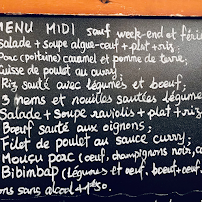 MENU MIDI sauf week-end et férié
Salade + soupe algue-oeuf + plat + riz;
Porc (poitrine) caramel et pomme de terre;
Cuisse de poulet au curry;
Riz sauté avec légumes et boeuf;
3 nems et nouilles sautées légumes
Salade + Soupe raviolis + plat + riz
Boeuf sauté aux oignons;
Filet de poulet au sauce curry;
porc (oeuf, champignons noir,
Bibimbap (Légumes et oeuf, boeuf + oeuf
sans alcool + 1€50.